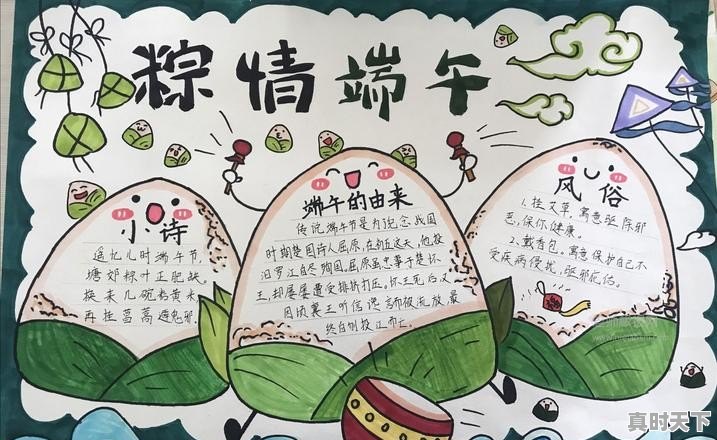 粽情端午
小诗
遥忆儿时端午节,
塘郊粽叶正肥缺.
换来几碗黄米,
再挂菖蒿避鬼邪.
端午的由来
传说端午节是为纪念战国
时期楚国诗人屈原,在初五这天,他投
汨罗江自尽殉国。屈原虽忠事于楚怀
王,却屡屡遭受排挤,怀王死后又
因顷襄王听信谗言而被流放,最
终自刎投江而亡。
风俗
1.挂艾草,寓意驱除邪
恶,保你健康。
2.戴香包,寓意保护自己不
受疾病侵扰,驱邪
真时天下